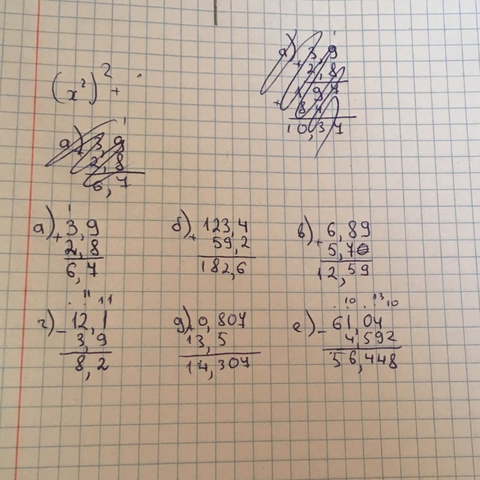 (x²)² +
а) 3,9
+ 2,8
6,7
а) 3,9
+ 2,8
6,7
б) 123,4
+ 59,2
182,6
в) 6,89
+ 5,70
12,59
г) 12,1
− 3,9
8,2
д) 0,807
13,5
14,307
е) 61,04
− 4,592
56,448